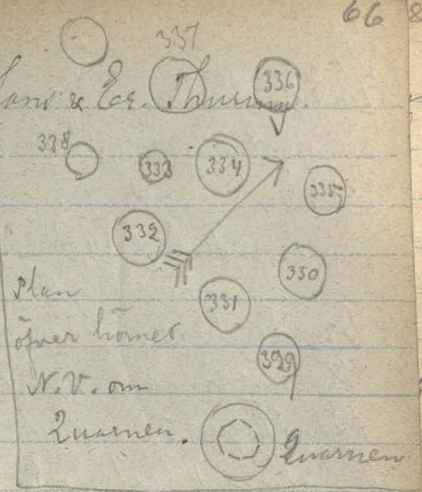 66
337
336
338
333
334
335
332
330
331
329
Plan
öfver hörnet
N.V. om
Quarnen.
Quarnen